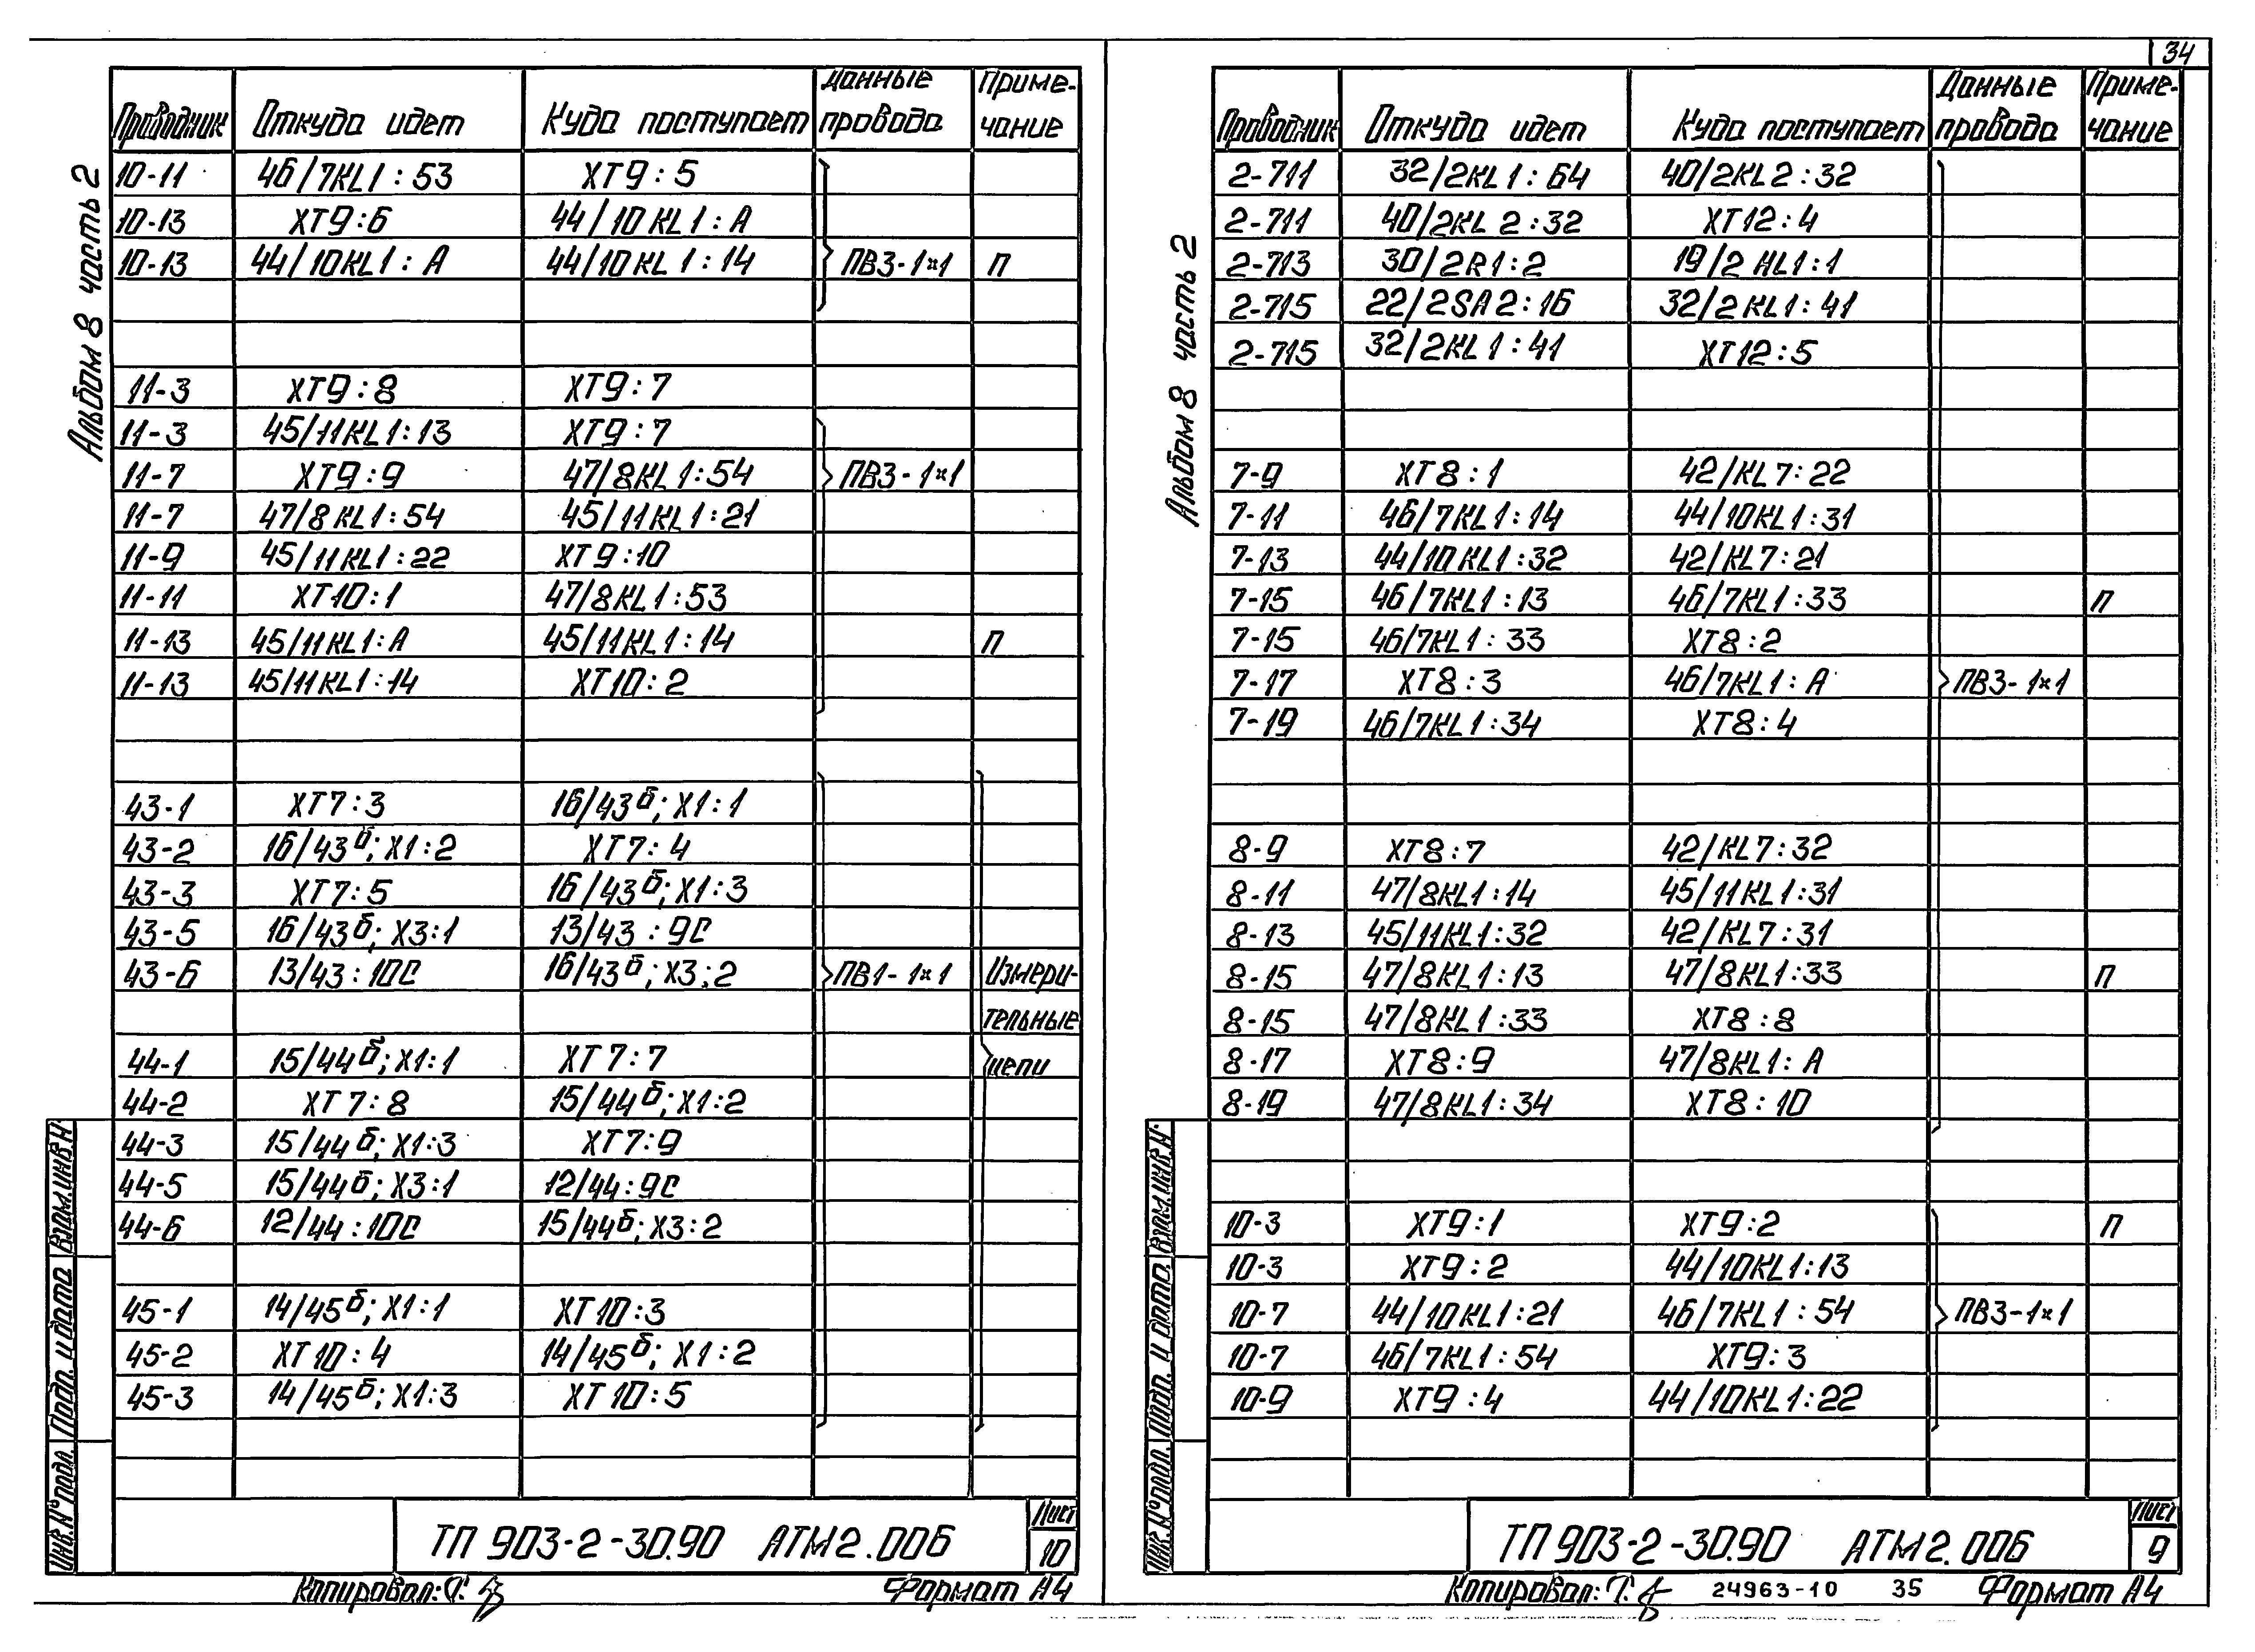 34
Альбом 8 часть 2
Проводник Откуда идет Куда поступает Данные провода Приме-чание
10-11 46/7KL1:53 XT9:5
10-13 XT9:6 44/10KL1:A
10-13 44/10KL1:A 44/10KL1:14 ПВ3-1×1 П
11-3 XT9:8 XT9:7
11-3 45/11KL1:13 XT9:7
11-7 XT9:9 47/8KL1:54 ПВ3-1×1
11-7 47/8KL1:54 45/11KL1:21
11-9 45/11KL1:22 XT9:10
11-11 XT10:1 47/8KL1:53
11-13 45/11KL1:A 45/11KL1:14 П
11-13 45/11KL1:14 XT10:2
43-1 XT7:3 16/43б; X1:1
43-2 16/43б; X1:2 XT7:4
43-3 XT7:5 16/43б; X1:3
43-5 16/43б; X3:1 13/43:9С
43-6 13/43:10С 16/43б; X3:2 ПВ1-1×1 Измери-
тельные
44-1 15/44б; X1:1 XT7:7 цепи
44-2 XT7:8 15/44б; X1:2
44-3 15/44б; X1:3 XT7:9
44-5 15/44б; X3:1 12/44:9С
44-6 12/44:10С 15/44б; X3:2
45-1 14/45б; X1:1 XT10:3
45-2 XT10:4 14/45б; X1:2
45-3 14/45б; X1:3 XT10:5
Взам.инв.№
Подп. и дата
Инв.№подл.
ТП 903-2-30.90 АТМ2.006
Лист
10
Копировал:
Формат А4
Альбом 8 часть 2
Проводник Откуда идет Куда поступает Данные провода Приме-чание
2-711 32/2KL1:64 40/2KL2:32
2-711 40/2KL2:32 XT12:4
2-713 30/2R1:2 19/2HL1:1
2-715 22/2SA2:16 32/2KL1:41
2-715 32/2KL1:41 XT12:5
7-9 XT8:1 42/KL7:22
7-11 46/7KL1:14 44/10KL1:31
7-13 44/10KL1:32 42/KL7:21
7-15 46/7KL1:13 46/7KL1:33 П
7-15 46/7KL1:33 XT8:2
7-17 XT8:3 46/7KL1:A ПВ3-1×1
7-19 46/7KL1:34 XT8:4
8-9 XT8:7 42/KL7:32
8-11 47/8KL1:14 45/11KL1:31
8-13 45/11KL1:32 42/KL7:31
8-15 47/8KL1:13 47/8KL1:33 П
8-15 47/8KL1:33 XT8:8
8-17 XT8:9 47/8KL1:A
8-19 47/8KL1:34 XT8:10
10-3 XT9:1 XT9:2 П
10-3 XT9:2 44/10KL1:13
10-7 44/10KL1:21 46/7KL1:54 ПВ3-1×1
10-7 46/7KL1:54 XT9:3
10-9 XT9:4 44/10KL1:22
Взам.инв.№
Подп. и дата
Инв.№подл.
ТП 903-2-30.90 АТМ2.006
Лист
9
Копировал:
24963-10 35
Формат А4